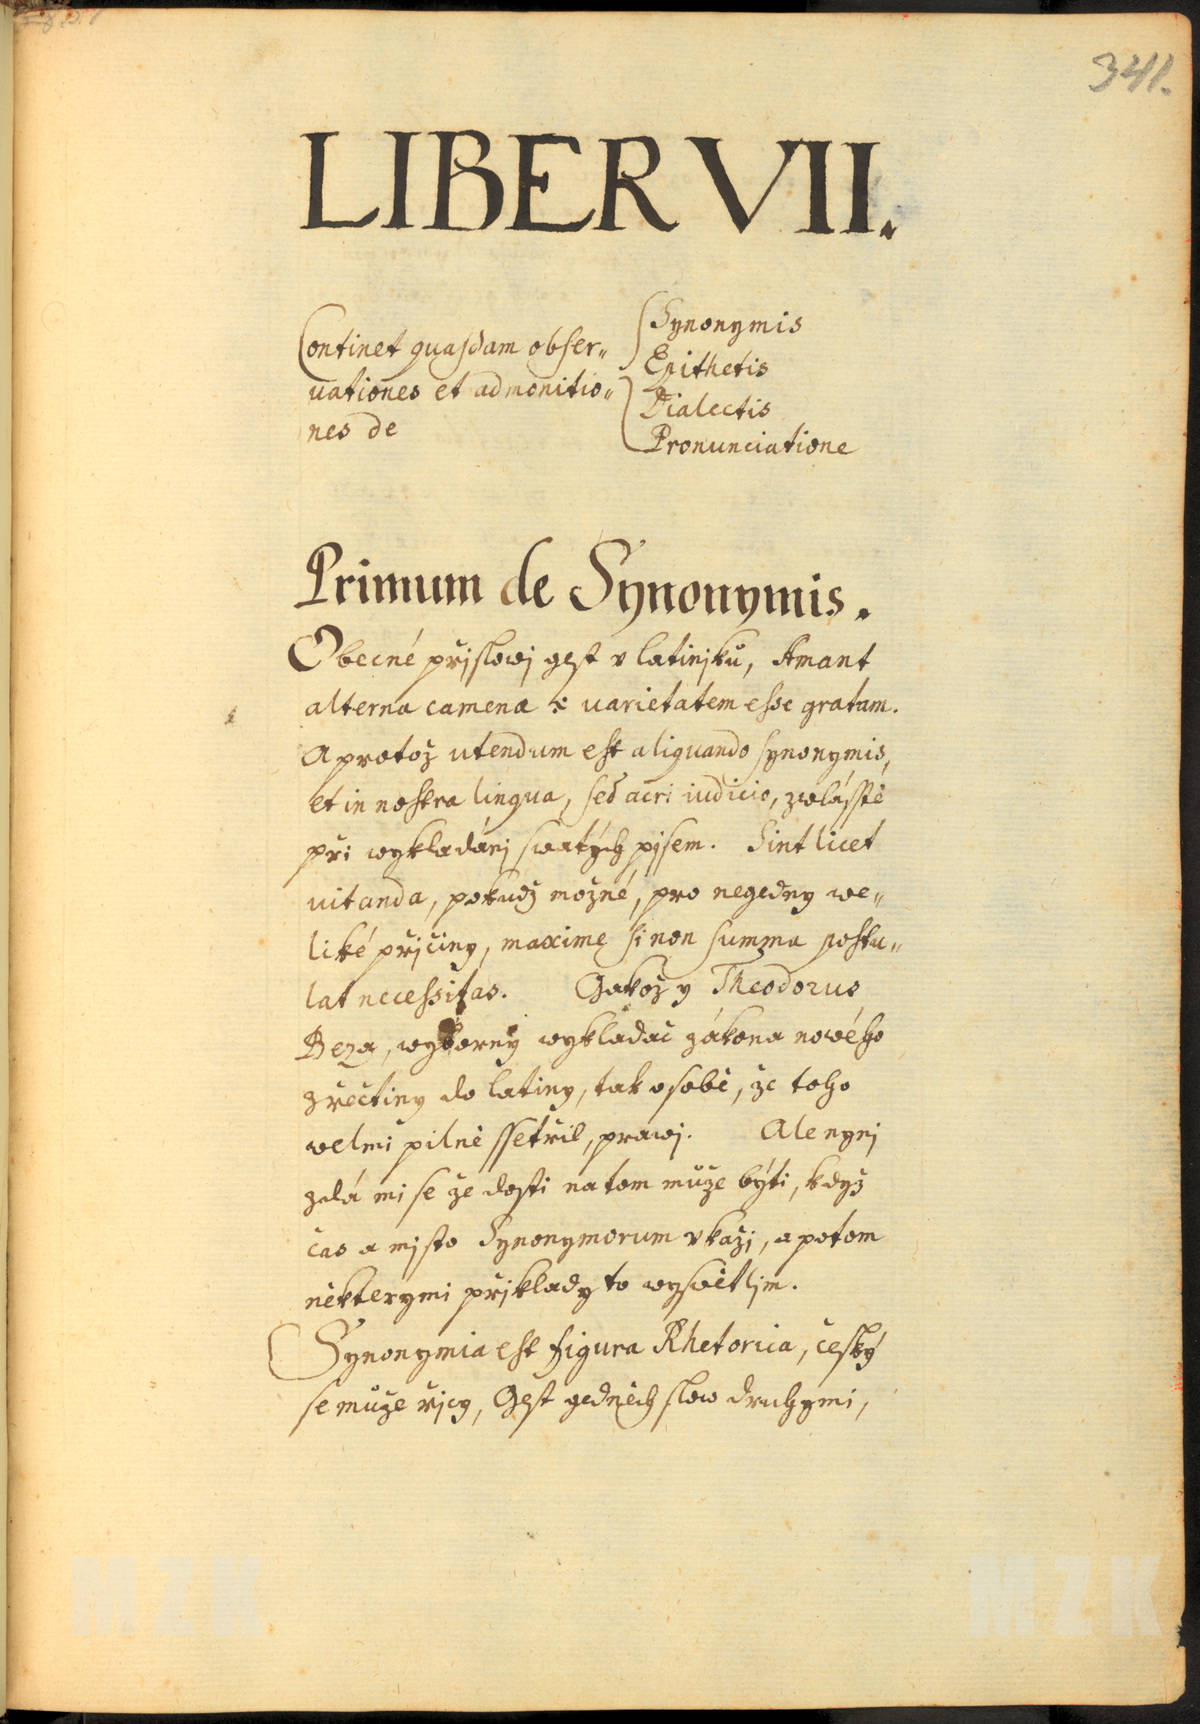 341.
LIBER VII.
Continet quasdam obser„
uationes et admonitio„
nes de
Synonymis
Epithetis
Dialectis
Pronunciatione
Primum de Synonymis.
Obecné přjslowj gest v latinjků, Amant
alterna camenæ : uarietatem esse gratam.
A protož utendum est aliquando synonymis,
et in nostra lingua, sed acri iudicio, zwlásstě
při wykladánj swatých pjsem. Sint licet
uitanda, pokudž možné, pro negedny we„
liké přjčiny, maxime si non summa postu„
lat necessitas. Gakož y Theodorus
Beza, wýborný wykladač zákona nowého
z řečtiny do latiny, tak o sobě, že toho
welmi pilně ssetřil, prawj. Ale nynj
zdá mi se že dosti na tom může býti, když
čas a mjsto Synonymorum vkáži, a potom
některymi přjklady to wyswětljm.
Synonymia est figura Rhetorica, česky
se může řjcy, Gest gedněch slow druhymi,
MZK
MZK